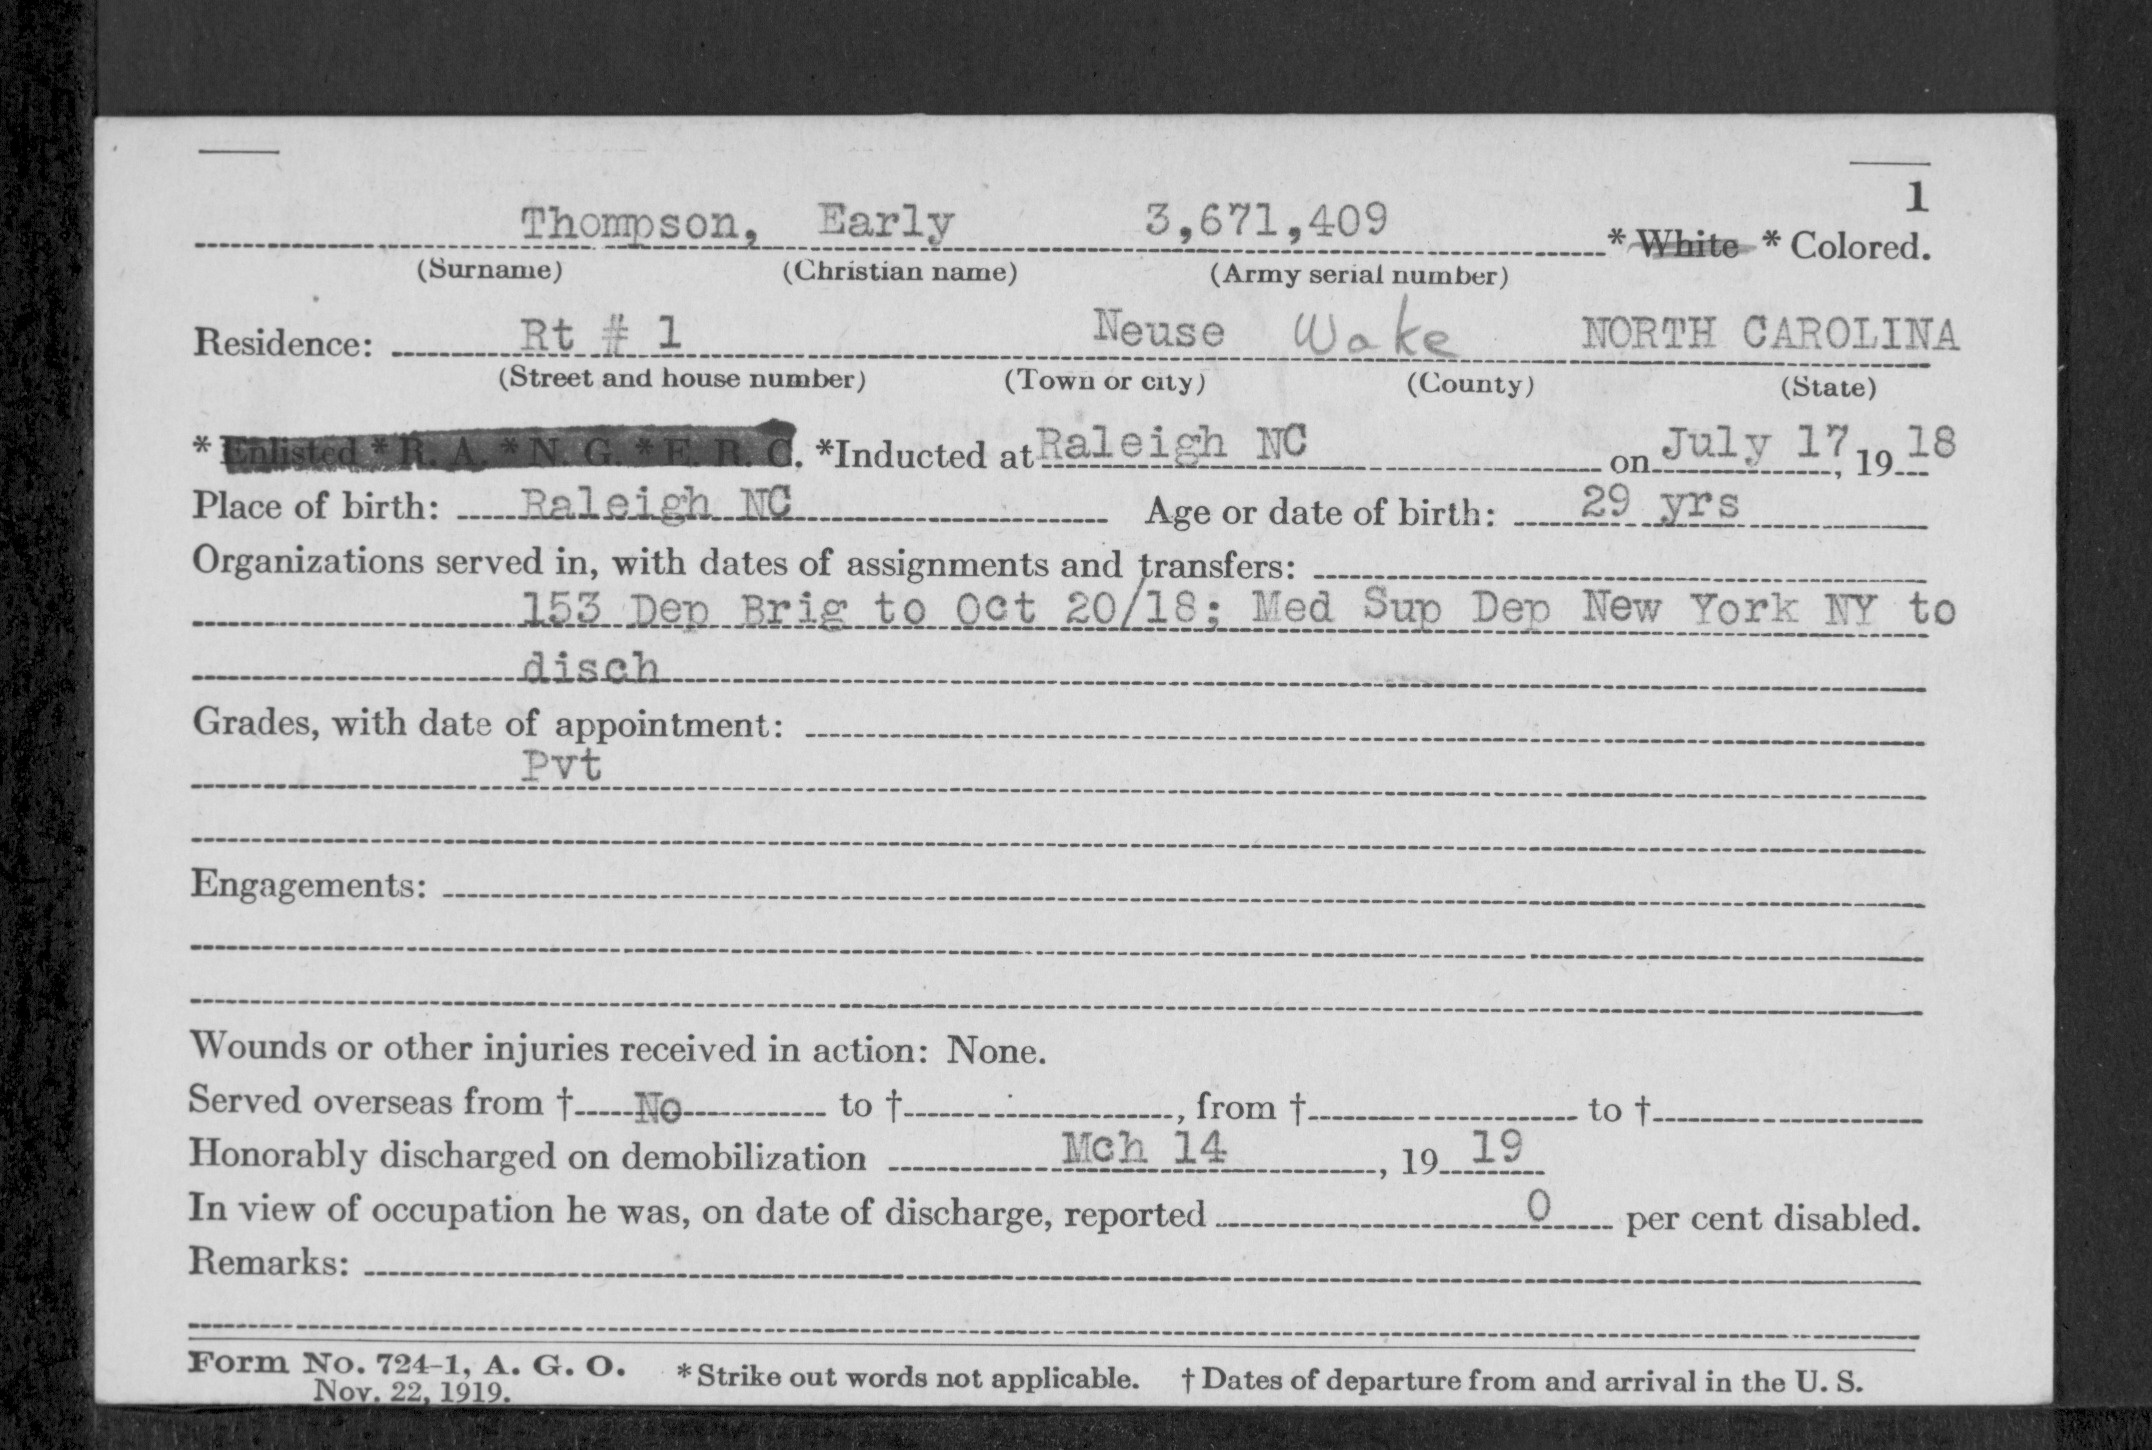 1
Thompson, Early 3,671,409 * White * Colored.
(Surname) (Christian name) (Army serial number)
Residence: Rt # 1 Neuse Wake NORTH CAROLINA
(Street and house number) (Town or city) (County) (State)
* Enlisted * R. A. * N. G. * E. R. C. *Inducted at Raleigh NC on July 17, 19 18
Place of birth: Raleigh NC Age or date of birth: 29 yrs
Organizations served in, with dates of assignments and transfers:
153 Dep Brig to Oct 20/18; Med Sup Dep New York NY to
disch
Grades, with date of appointment:
Pvt
Engagements:
Wounds or other injuries received in action: None.
Served overseas from † No to † , from † to †
Honorably discharged on demobilization Mch 14 , 19 19
In view of occupation he was, on date of discharge, reported 0 per cent disabled.
Remarks:
Form No. 724-1, A. G. O. * Strike out words not applicable. † Dates of departure from and arrival in the U. S.
Nov. 22, 1919.